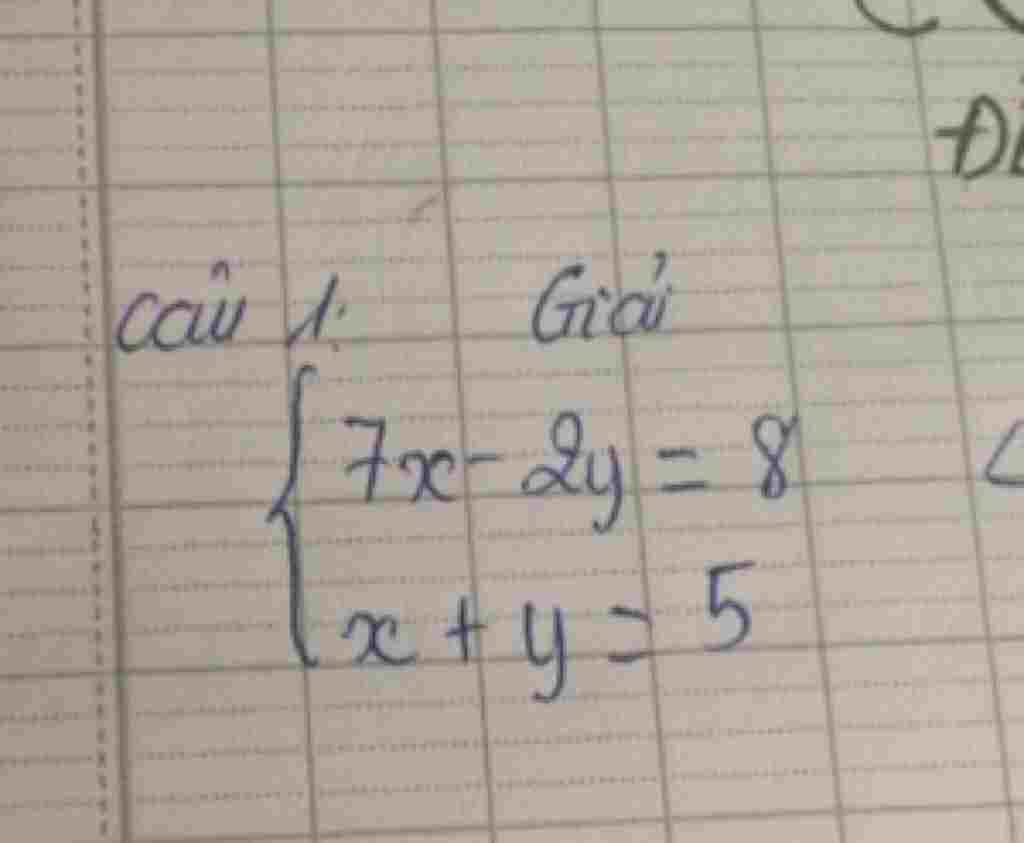 Câu 1: Giải
{ 7x - 2y = 8
x + y = 5